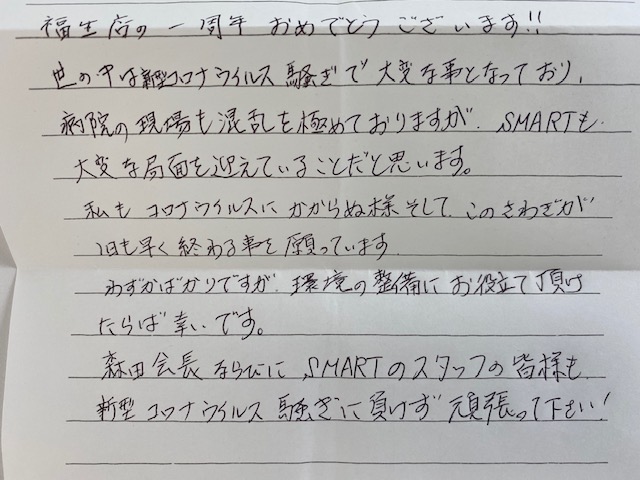 福生店の一周年おめでとうございます!!
世の中は新型コロナウイルス騒ぎで大変な事となっており、
病院の現場も混乱を極めておりますが、SMARTも
大変な局面を迎えていることだと思います。
私もコロナウイルスにかからぬ様そして、このさわぎが
1日も早く終わる事を願っています。
わずかばかりですが、環境の整備にお役立て頂け
たらば幸いです。
森田会長ならびにSMARTのスタッフの皆様も
新型コロナウイルス騒ぎに負けず頑張って下さい!